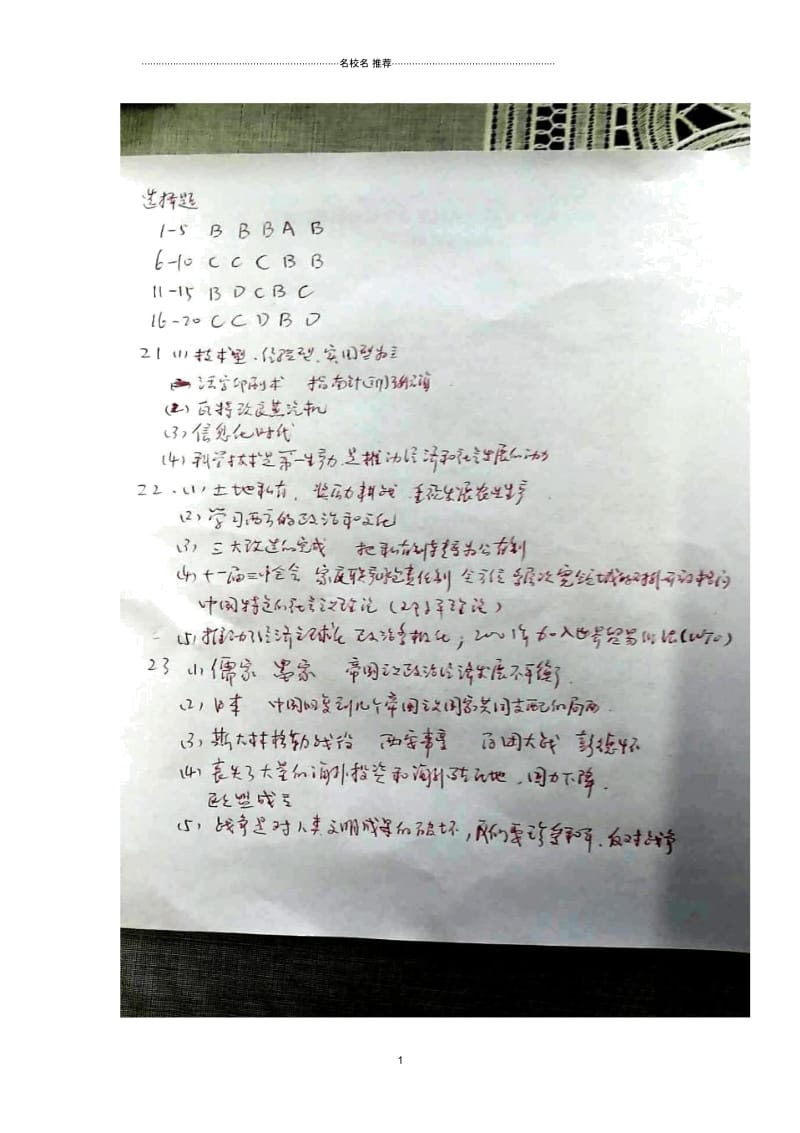 名校名 推荐
选择题
1-5 B B B A B
6-10 C C C B B
11-15 B D C B C
16-20 C C D B D
21 (1) 技术型、经验型、实用型为主
活字印刷术 指南针
(2) 瓦特改良蒸汽机
(3) 信息化时代
(4) 科学技术是第一生产力 是推动经济和社会发展的动力
22、(1) 土地私有, 奖励耕战 重视发展农业生产
(2) 学习西方的政治和文化
(3) 三大改造的完成 把私有制转变为公有制
(4) 十一届三中全会 家庭联产承包责任制 全方位多层次宽领域的对外开放格局
中国特色的社会主义理论(邓小平理论)
(5) 推动了经济全球化 政治多极化; 2001年加入世界贸易组织(WTO)
23 (1) 儒家 墨家 帝国主义政治经济发展不平衡
(2) 日本 中国回复到几个帝国主义国家共同支配的局面
(3) 斯大林格勒战役 西安事变 百团大战 彭德怀
(4) 丧失了大量的海外投资和海外殖民地, 国力下降.
欧盟成立
(5) 战争是对人类文明成果的破坏, 我们要珍爱和平、反对战争
1